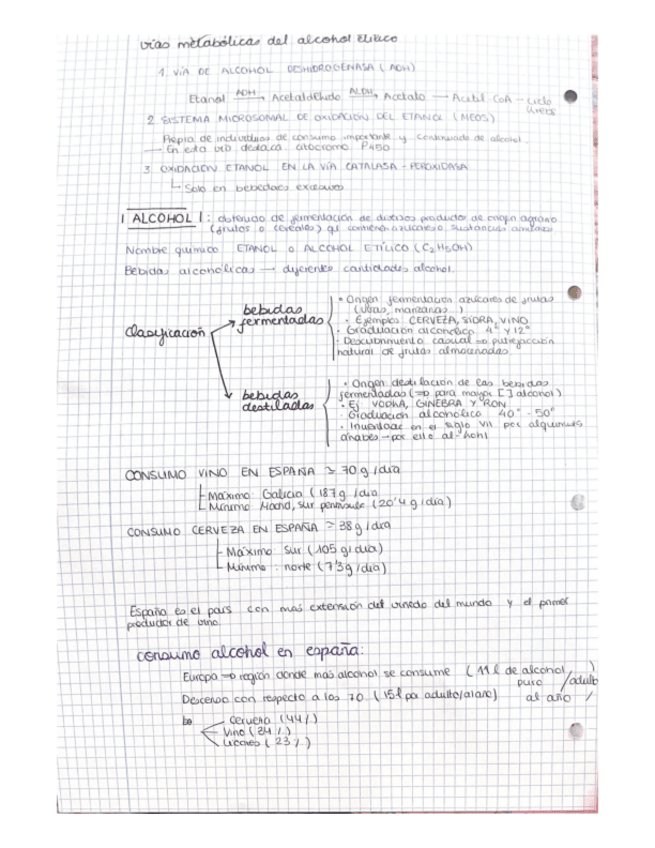 vías metabólicas del alcohol etílico
1. VÍA DE ALCOHOL DESHIDROGENASA (ADH)
Etanol ADH → Acetaldehído ALDH → Acetato — Acetil CoA — ciclo
Krebs
2 SISTEMA MICROSOMAL DE OXIDACION DEL ETANOL (MEOS)
Propia de individuos de consumo importante y continuado de alcohol.
— En esta vía destaca citocromo P450
3. OXIDACION ETANOL EN LA VÍA CATALASA - PEROXIDASA
Solo en bebedores excesivos
ALCOHOL : obtenido de fermentación de diversos productos de origen agrario
(frutos o cereales) q contienen azúcares o sustancias
Nombre químico ETANOL o ALCOHOL ETÍLICO (C2H5OH)
Bebidas alcohólicas → diferentes cantidades alcohol.
Clasificación
bebidas
fermentadas
• Origen fermentación azúcares de frutas
(uvas, manzanas..)
• Ejemplos: CERVEZA, SIDRA, VINO
• Graduación alcoholica 4° y 12°
• Descubrimiento casual → putrefacción
natural de frutas almacenadas
bebidas
destiladas
• Origen destilación de las bebidas
fermentadas (⇒ para mayor [ ] alcohol)
• Ej VODKA, GINEBRA Y RON
• Graduación alcoholica 40° - 50°
• Inventadas en el siglo VII por alquimistas
árabes → por ello al-kohl
CONSUMO VINO EN ESPAÑA ≥ 70 g/día
Máximo Galicia (187g/día
Mínimo Madrid, sur península (20'4 g/día)
CONSUMO CERVEZA EN ESPAÑA ≥ 38 g/día
Máximo sur (105 g/día)
Mínimo: norte (7'3g/día)
España es el país con mas extensión del viñedo del mundo y el primer
productor de vino.
consumo alcohol en españa:
Europa → región donde mas alcohol se consume (11 l de alcohol )
puro /adulto
Descenso con respecto a los 70 (15 l por adulto/al año) al año /
Cerveza (44%)
Vino (24%)
Licores (23%)